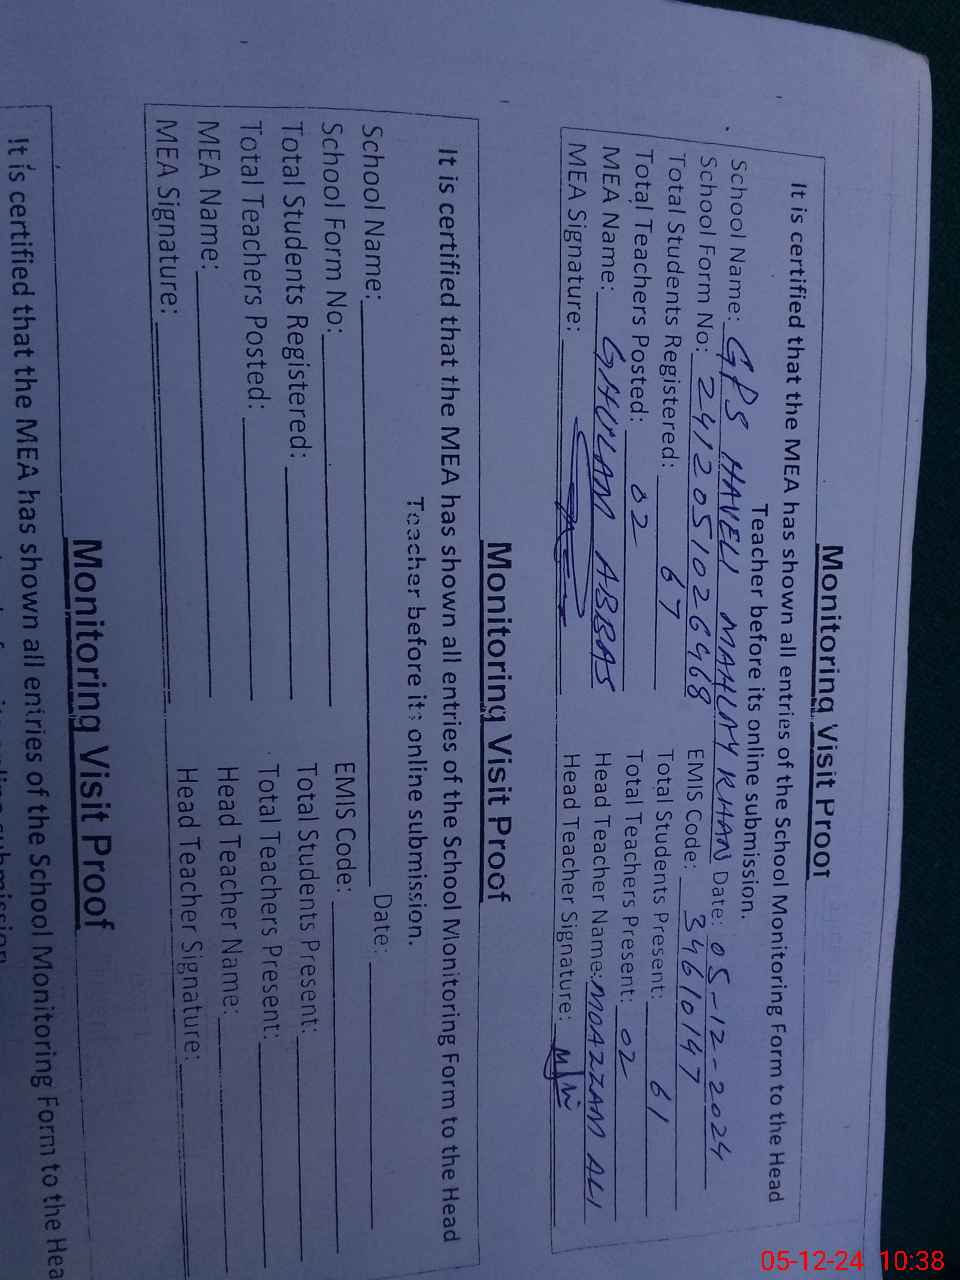 Monitoring Visit Proof
It is certified that the MEA has shown all entries of the School Monitoring Form to the Head
Teacher before its online submission.
School Name: GPS HAVELI MAHLAY KHAN Date: 05-12-2024
School Form No: 2412051026468 EMIS Code: 34610147
Total Students Registered: 67 Total Students Present: 61
Total Teachers Posted: 02 Total Teachers Present: 02
MEA Name: GHULAM ABBAS Head Teacher Name: MOAZZAM ALI
MEA Signature: Head Teacher Signature:
Monitoring Visit Proof
It is certified that the MEA has shown all entries of the School Monitoring Form to the Head
Teacher before its online submission.
School Name: Date:
School Form No: EMIS Code:
Total Students Registered: Total Students Present:
Total Teachers Posted: Total Teachers Present:
MEA Name: Head Teacher Name:
MEA Signature: Head Teacher Signature:
Monitoring Visit Proof
It is certified that the MEA has shown all entries of the School Monitoring Form to the Hea
05-12-24 10:38